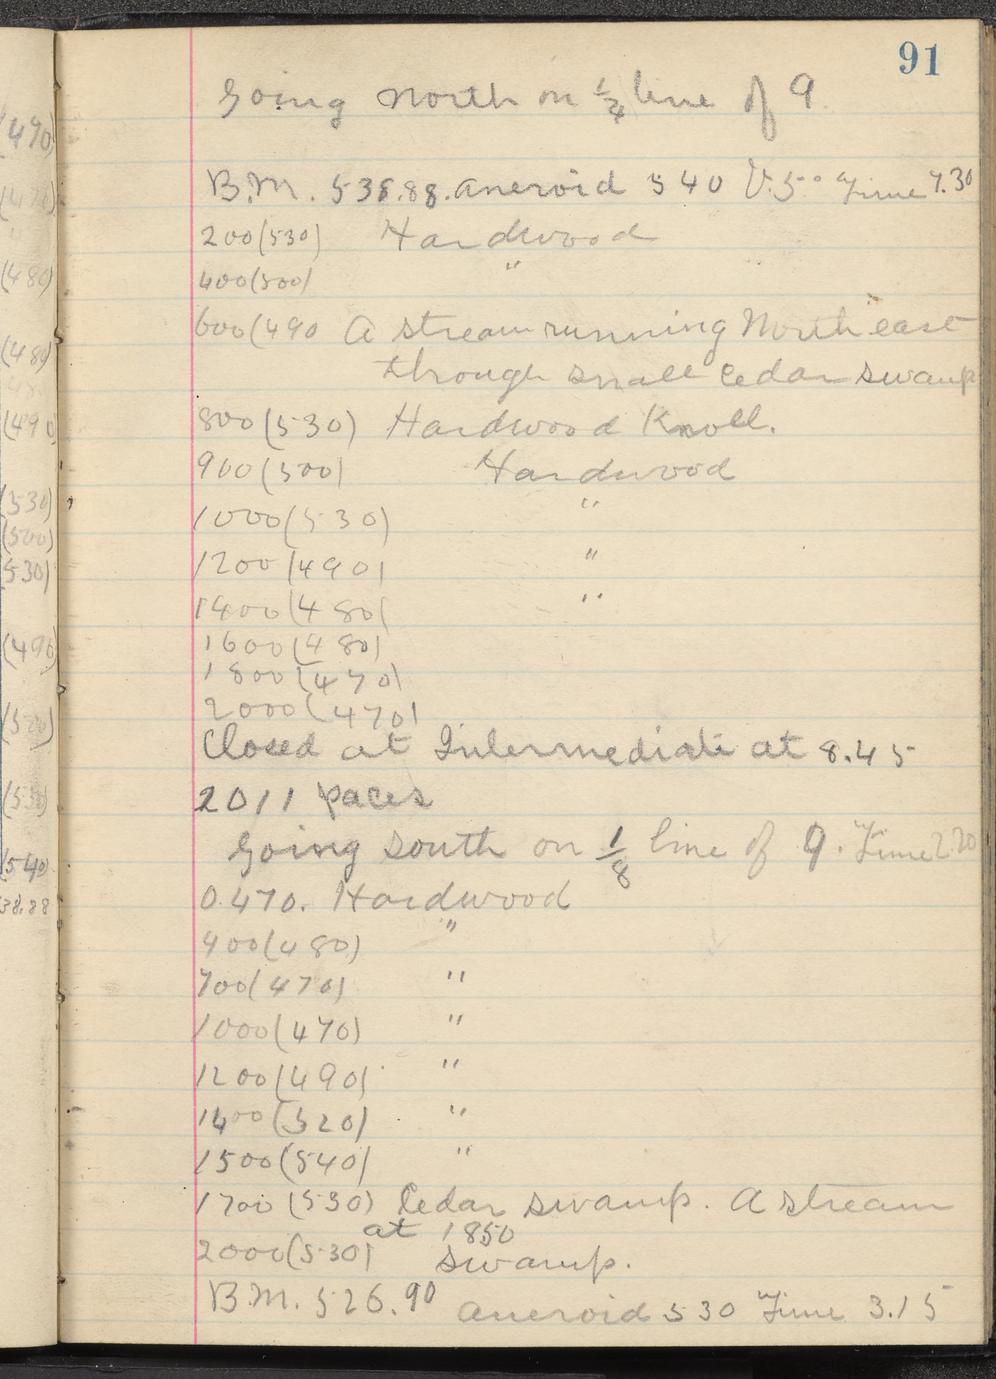 91
Going North on 1/4 line of 9
B.M. 538.88. aneroid 540 V.5° Time 7.30
200(530) Hardwood
400(500) "
600(490 A stream running North east
through small Cedar swamp
800(530) Hardwood Knoll.
900(500) Hardwood
1000(530) "
1200(490) "
1400(480( "
1600(480)
1800(470)
2000(470)
Closed at Intermediate at 8.45
2011 paces
Going south on 1/8 line of 9. Time 2.20
0.470. Hardwood
400(480) "
700(470) "
1000(470) "
1200(490) "
1400(520) "
1500(540) "
1700(530) Cedar swamp. A stream
at 1850
2000(530) swamp.
B.M. 526.90 aneroid 530 Time 3.15
(490)
(480)
(480)
(490)
(530)
(500)
530)
(490
(540)
38.88